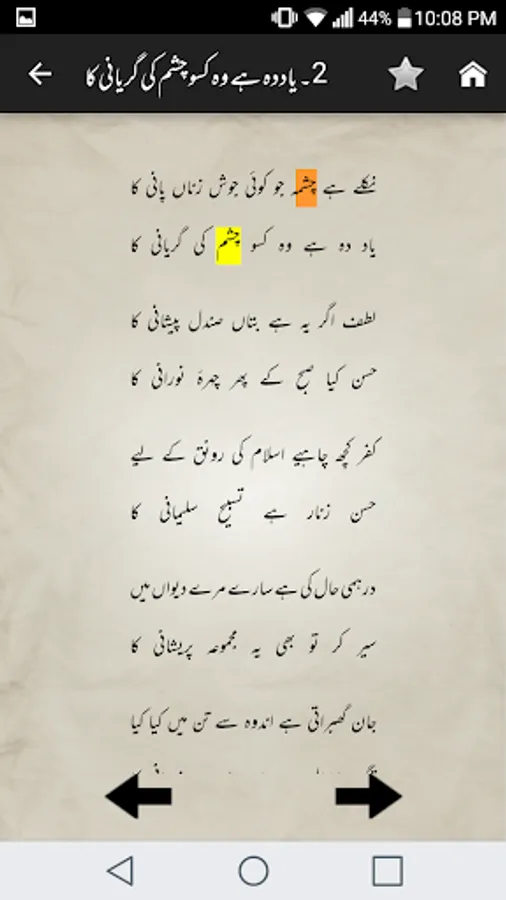 44% 10:08 PM
2۔ یاددہ ہے وہ کسو چشم کی گریانی کا
نکلے ہے چشمہ جو کوئی جوش زناں پانی کا
یاد دہ ہے وہ کسو چشم کی گریانی کا
لطف اگر یہ ہے بتاں صندل پیشانی کا
حسن کیا صبح کے پھر چہرۂ نورانی کا
کفر کچھ چاہیے اسلام کی رونق کے لیے
حسن زنار ہے تسبیح سلیمانی کا
درہمی حال کی ہے سارے مرے دیواں میں
سیر کر تو بھی یہ مجموعہ پریشانی کا
جان گھبراتی ہے اندوہ سے تن میں کیا کیا